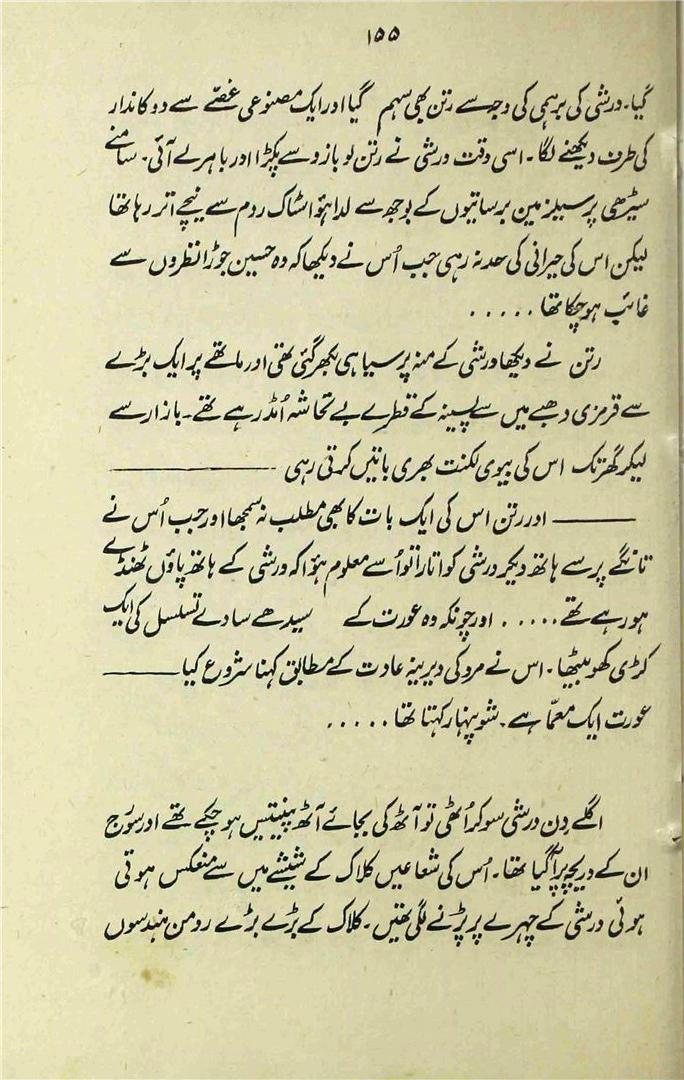 ۱۵۵
گیا۔ درشی کی برہمی کی وجہ سے رتن بھی سہم گیا اور ایک مصنوعی غصّے سے دوکاندار
کی طرف دیکھنے لگا۔ اسی وقت درشی نے رتن کو بازو سے پکڑا اور باہر لے آئی۔ سامنے
سیڑھی پر سیلز مین برساتیوں کے بوجھ سے لدا ہوُا سٹاک روم سے نیچے اتر رہا تھا
لیکن اس کی حیرانی کی حد نہ رہی جب اُس نے دیکھا کہ وہ حسین جوڑا نظروں سے
غائب ہو چکا تھا . . . . .
رتن نے دیکھا درشی کے منہ پر سیاہی بکھر گئی تھی اور ماتھے پر ایک بڑے
سے قرمزی دھبے میں سے پسینہ کے قطرے بے تحاشہ اُمڈ رہے تھے۔ بازار سے
لیکر گھر تک اس کی بیوی لکنت بھری باتیں کرتی رہی ———
——— اور رتن اس کی ایک بات کا بھی مطلب نہ سمجھا اور جب اُس نے
تانگے پر سے ہاتھ دیکر درشی کو اتارا تو اُسے معلوم ہوُا کہ درشی کے ہاتھ پاؤں ٹھنڈے
ہو رہے تھے . . . . . اور چونکہ وہ عورت کے سیدھے سادے تسلسل کی ایک
کڑی کھو بیٹھا۔ اس نے مرد کی دیرینہ عادت کے مطابق کہنا شروع کیا ———
عورت ایک معمّا ہے۔ شوپنہار کہتا تھا . . . . .
اگلے دِن درشی سو کر اُٹھی تو آٹھ کی بجائے آٹھ پینتیس ہو چکے تھے اور سوُرج
ان کے دریچہ پر آ گیا تھا۔ اُس کی شعاعیں کلاک کے شیشے میں سے منعکس ہوتی
ہوئی درشی کے چہرے پر پڑنے لگی تھیں۔ کلاک کے بڑے بڑے رومن ہندسوں